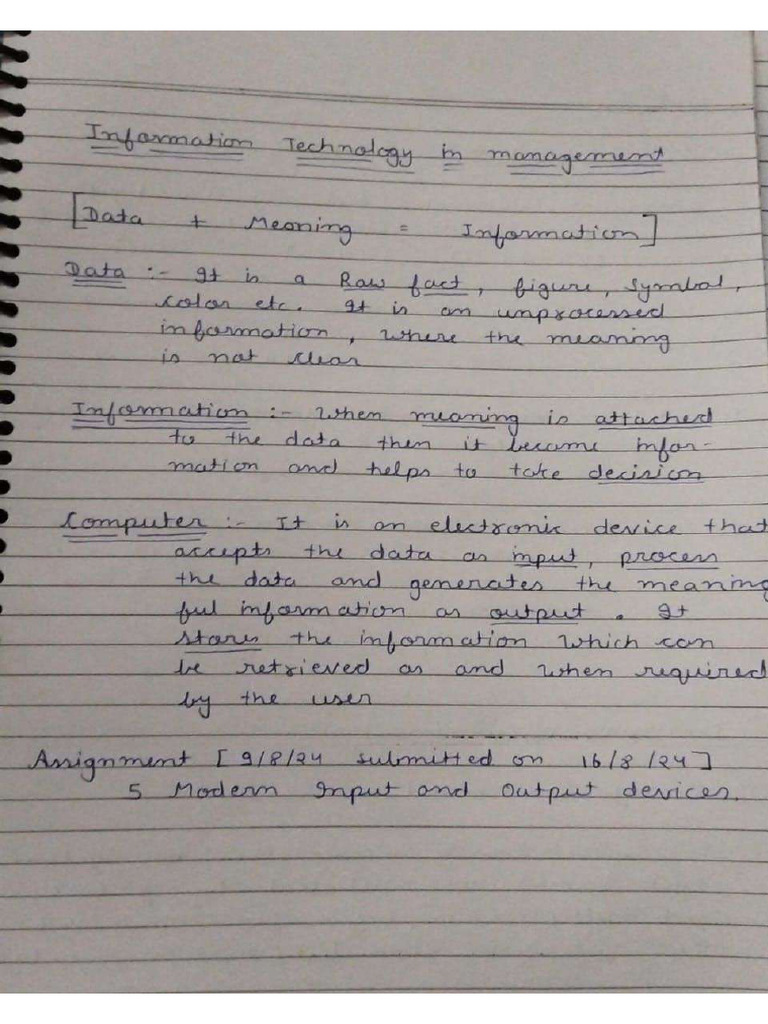 Information Technology in management
[Data + Meaning = Information]
Data :- It is a Raw fact, figure, symbol,
color etc. It is an unprocessed
information, where the meaning
is not clear
Information :- When meaning is attached
to the data then it become infor-
mation and helps to take decision
Computer :- It is an electronic device that
accepts the data as input, process
the data and generates the meaning
ful information as output. It
stores the information which can
be retrieved as and when required
by the user
Assignment [9/8/24 submitted on 16/8/24]
5 Modern Input and Output devices.